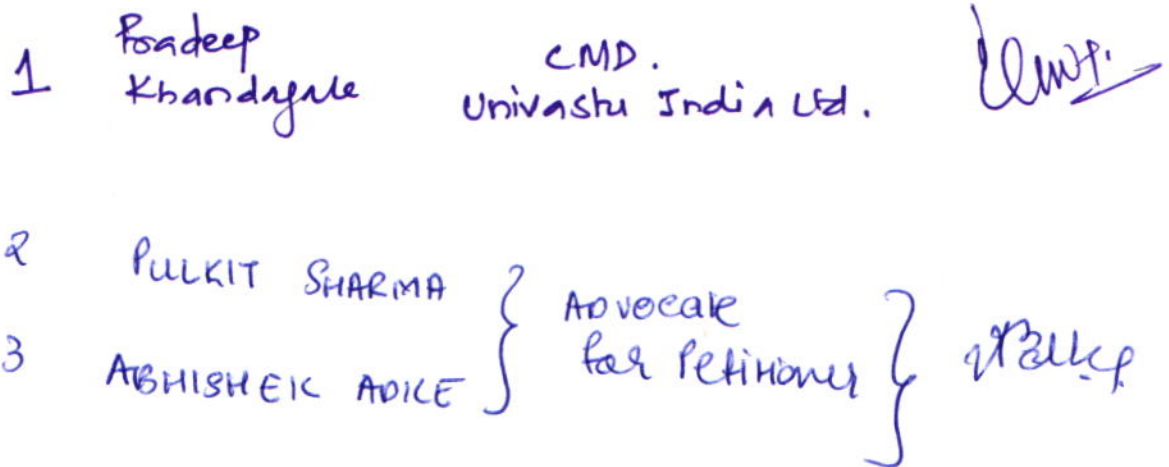 1 Pradeep CMD.
Khandagale Univastu India Ltd.
2 PULKIT SHARMA
3 ABHISHEK ADKE
Advocate
for Petitioner